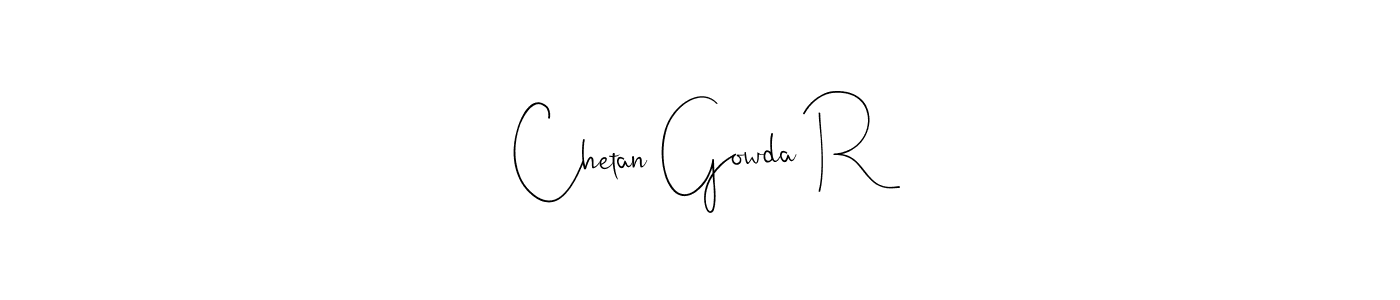 Chetan Gowda R